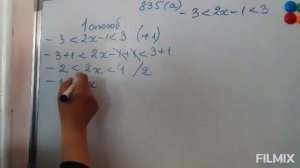 835(а)
- 3 < 2x - 1 < 3
1 способ
- 3 < 2x - 1 < 3 (+1)
- 3 + 1 < 2x - 1 + 1 < 3 + 1
- 2 < 2x < 4 /2
- 1 x
FILMIX